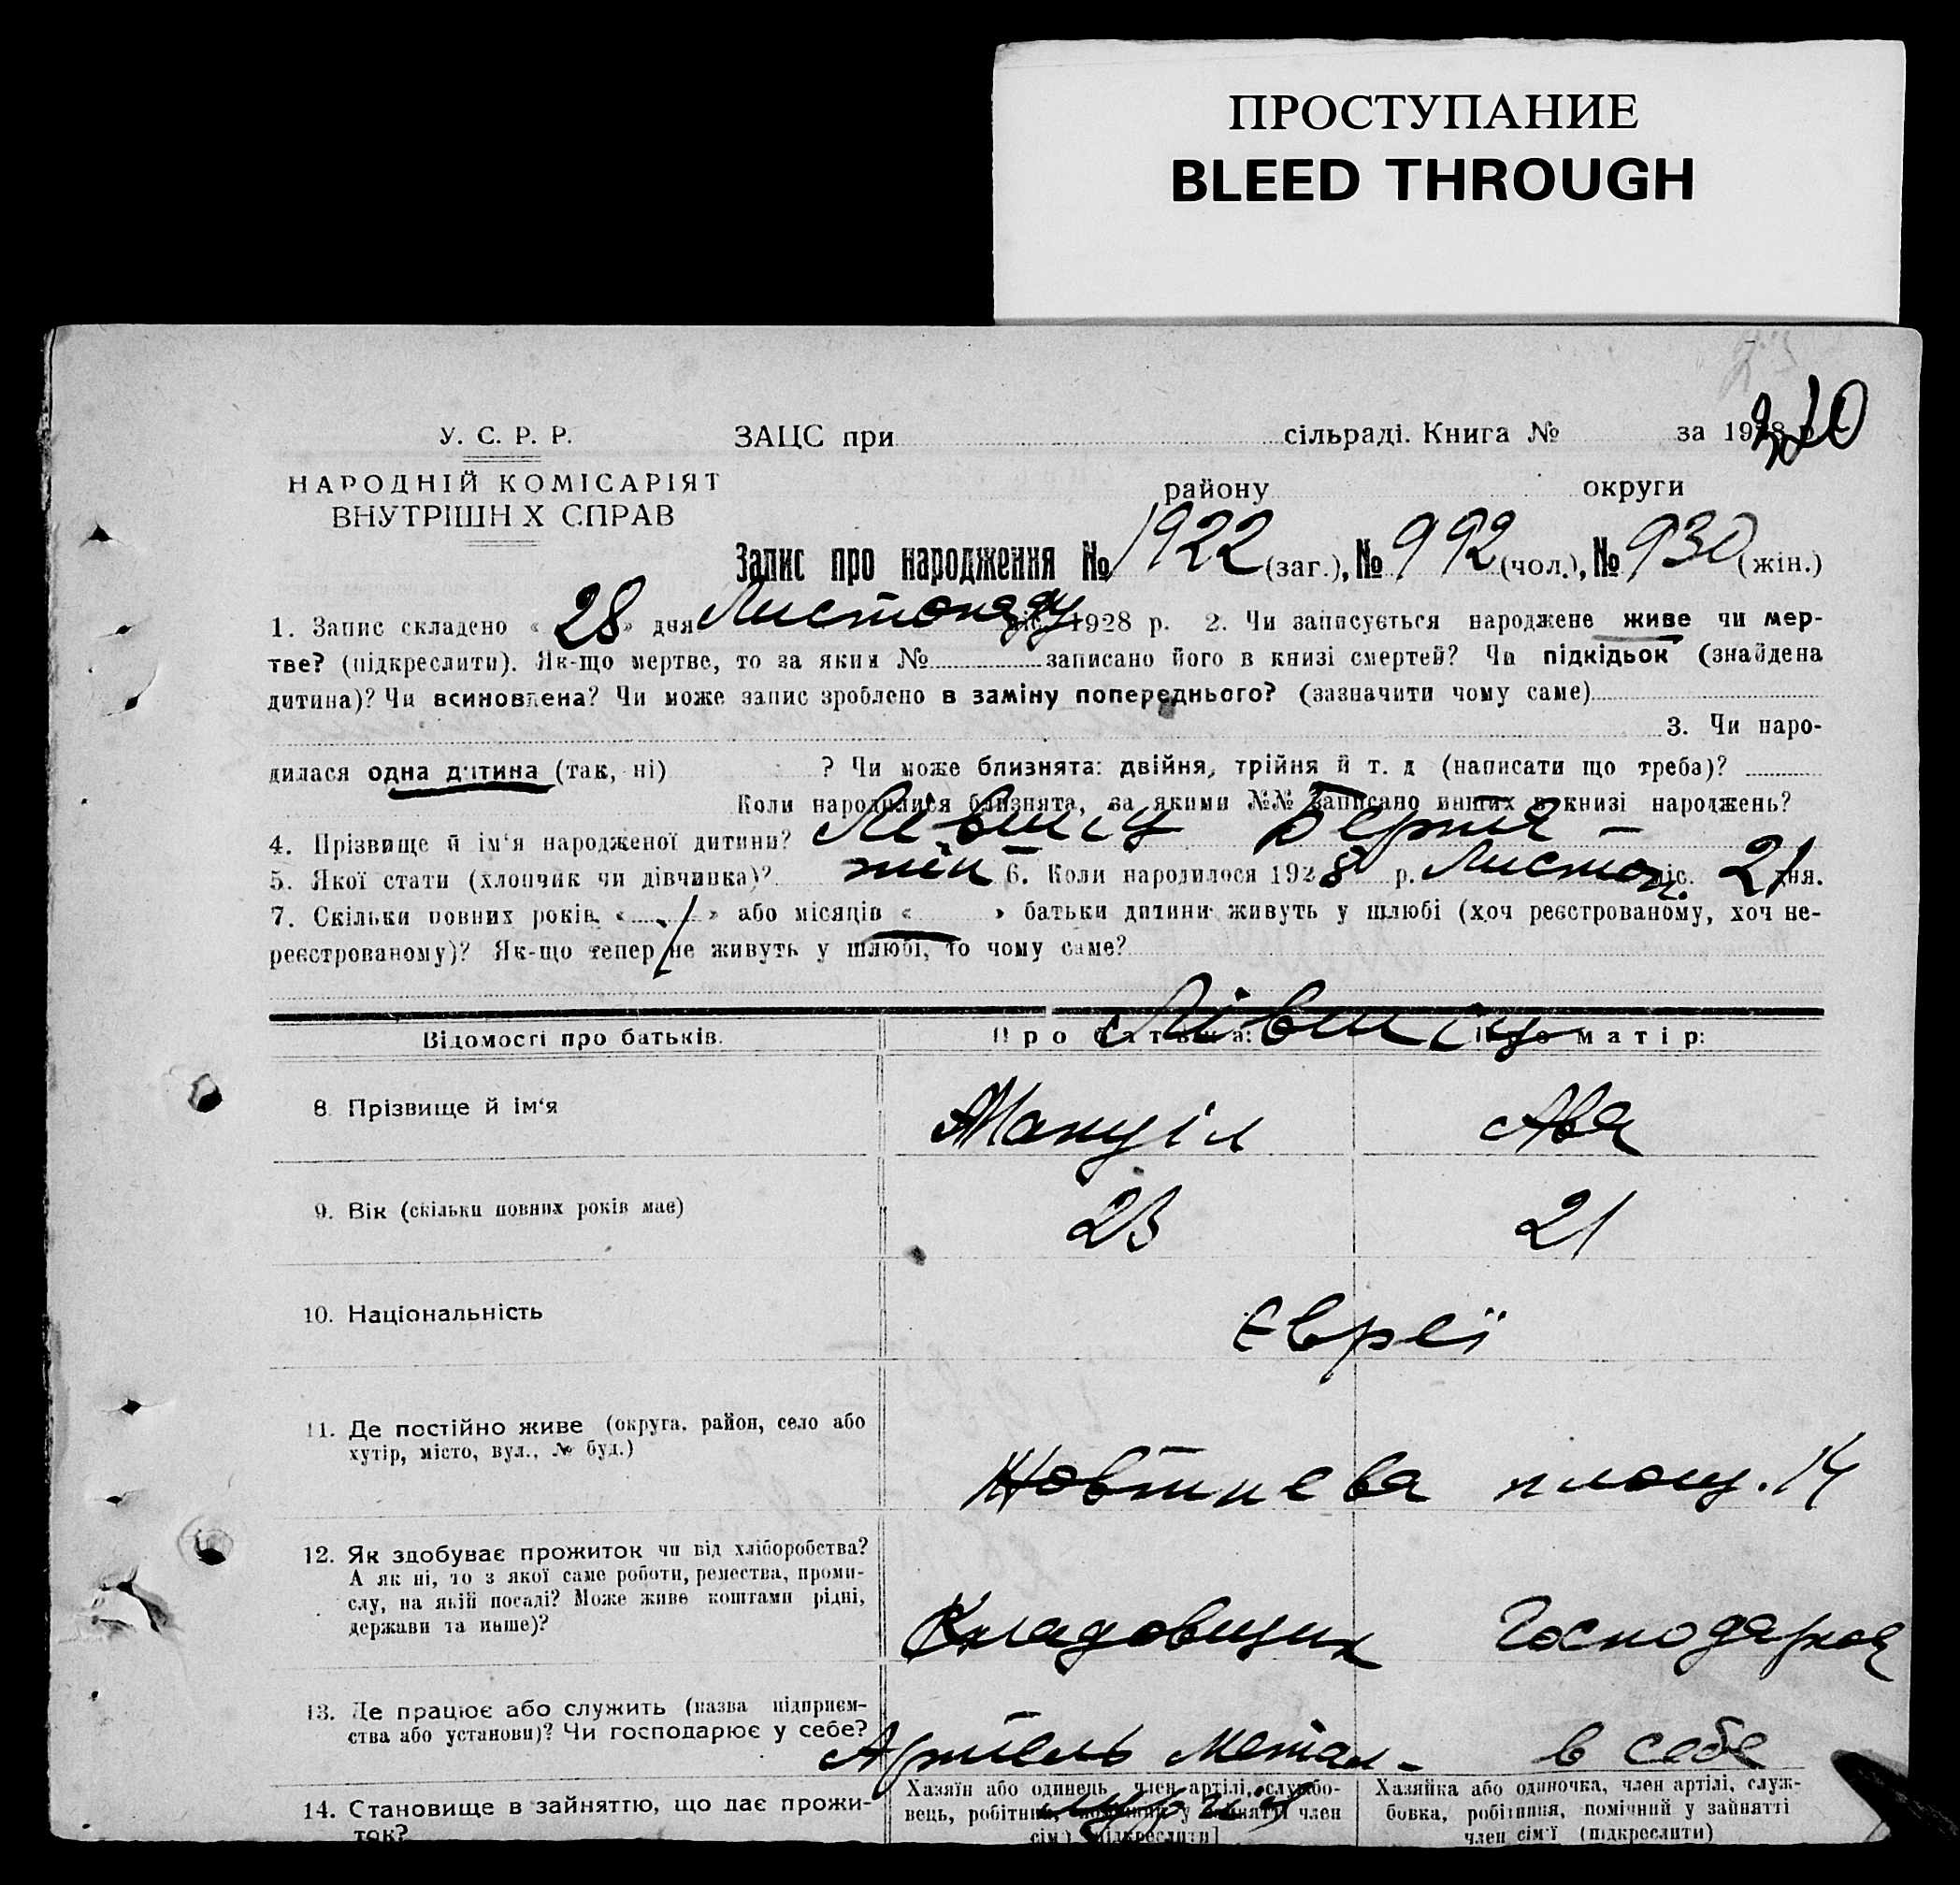 ПРОСТУПАНИЕ
BLEED THROUGH
370
У. С. Р. Р.
ЗАЦС при сільраді. Книга № за 1928 р.
НАРОДНІЙ КОМІСАРІЯТ
ВНУТРІШН Х СПРАВ
району округи
Запис про народження № 1922 (заг.), № 992 (чол.), № 930 (жін.)
1. Запис складено « 28 » дня Листопаду міс. 1928 р. 2. Чи записується народжене живе чи мер-
тве? (підкреслити). Як-що мертве, то за яким № записано його в книзі смертей? Чи підкідьок (знайдена
дитина)? Чи всиновлена? Чи може запис зроблено в заміну попереднього? (зазначити чому саме)
3. Чи наро-
дилася одна дитина (так, ні) ? Чи може близнята: двійня, трійня й т. д (написати що треба)?
Коли народилися близнята, за якими №№ записано инших в книзі народжень?
4. Прізвище й ім'я народженої дитини? Лівшіц Берта
5. Якої стати (хлопчик чи дівчинка)? жін 6. Коли народилося 1928 р. Листоп. міс. 21 дня.
7. Скільки повних років « 1 » або місяців « » батьки дитини живуть у шлюбі (хоч реєстрованому, хоч не-
реєстрованому)? Як-що тепер не живуть у шлюбі, то чому саме?
Лівшіц
Відомості про батьків. Про батька: Про матір:
8. Прізвище й ім'я Мануіл Ава
9. Вік (скільки повних років має) 23 21
10. Національність Євреї
11. Де постійно живе (округа, район, село або
хутір, місто, вул., № буд.)
Жовтнева площ. 14
12. Як здобуває прожиток чи від хліборобства?
А як ні, то з якої саме роботи, ремества, проми-
слу, на якій посаді? Може живе коштами рідні,
держави та инше)?
Кладовщик Господарка
13. Де працює або служить (назва підприєм-
ства або установи)? Чи господарює у себе?
Артель метал- в себе
14. Становище в зайняттю, що дає прожи-
ток?
Хазяїн або одинець, член артілі, службо-
вець, робітник, помічний у зайнятті член
сім'ї (підкреслити]
Хазяйка або одиночка, член артілі, служ-
бовка, робітниця, помічний у зайнятті
член сім'ї (підкреслити)